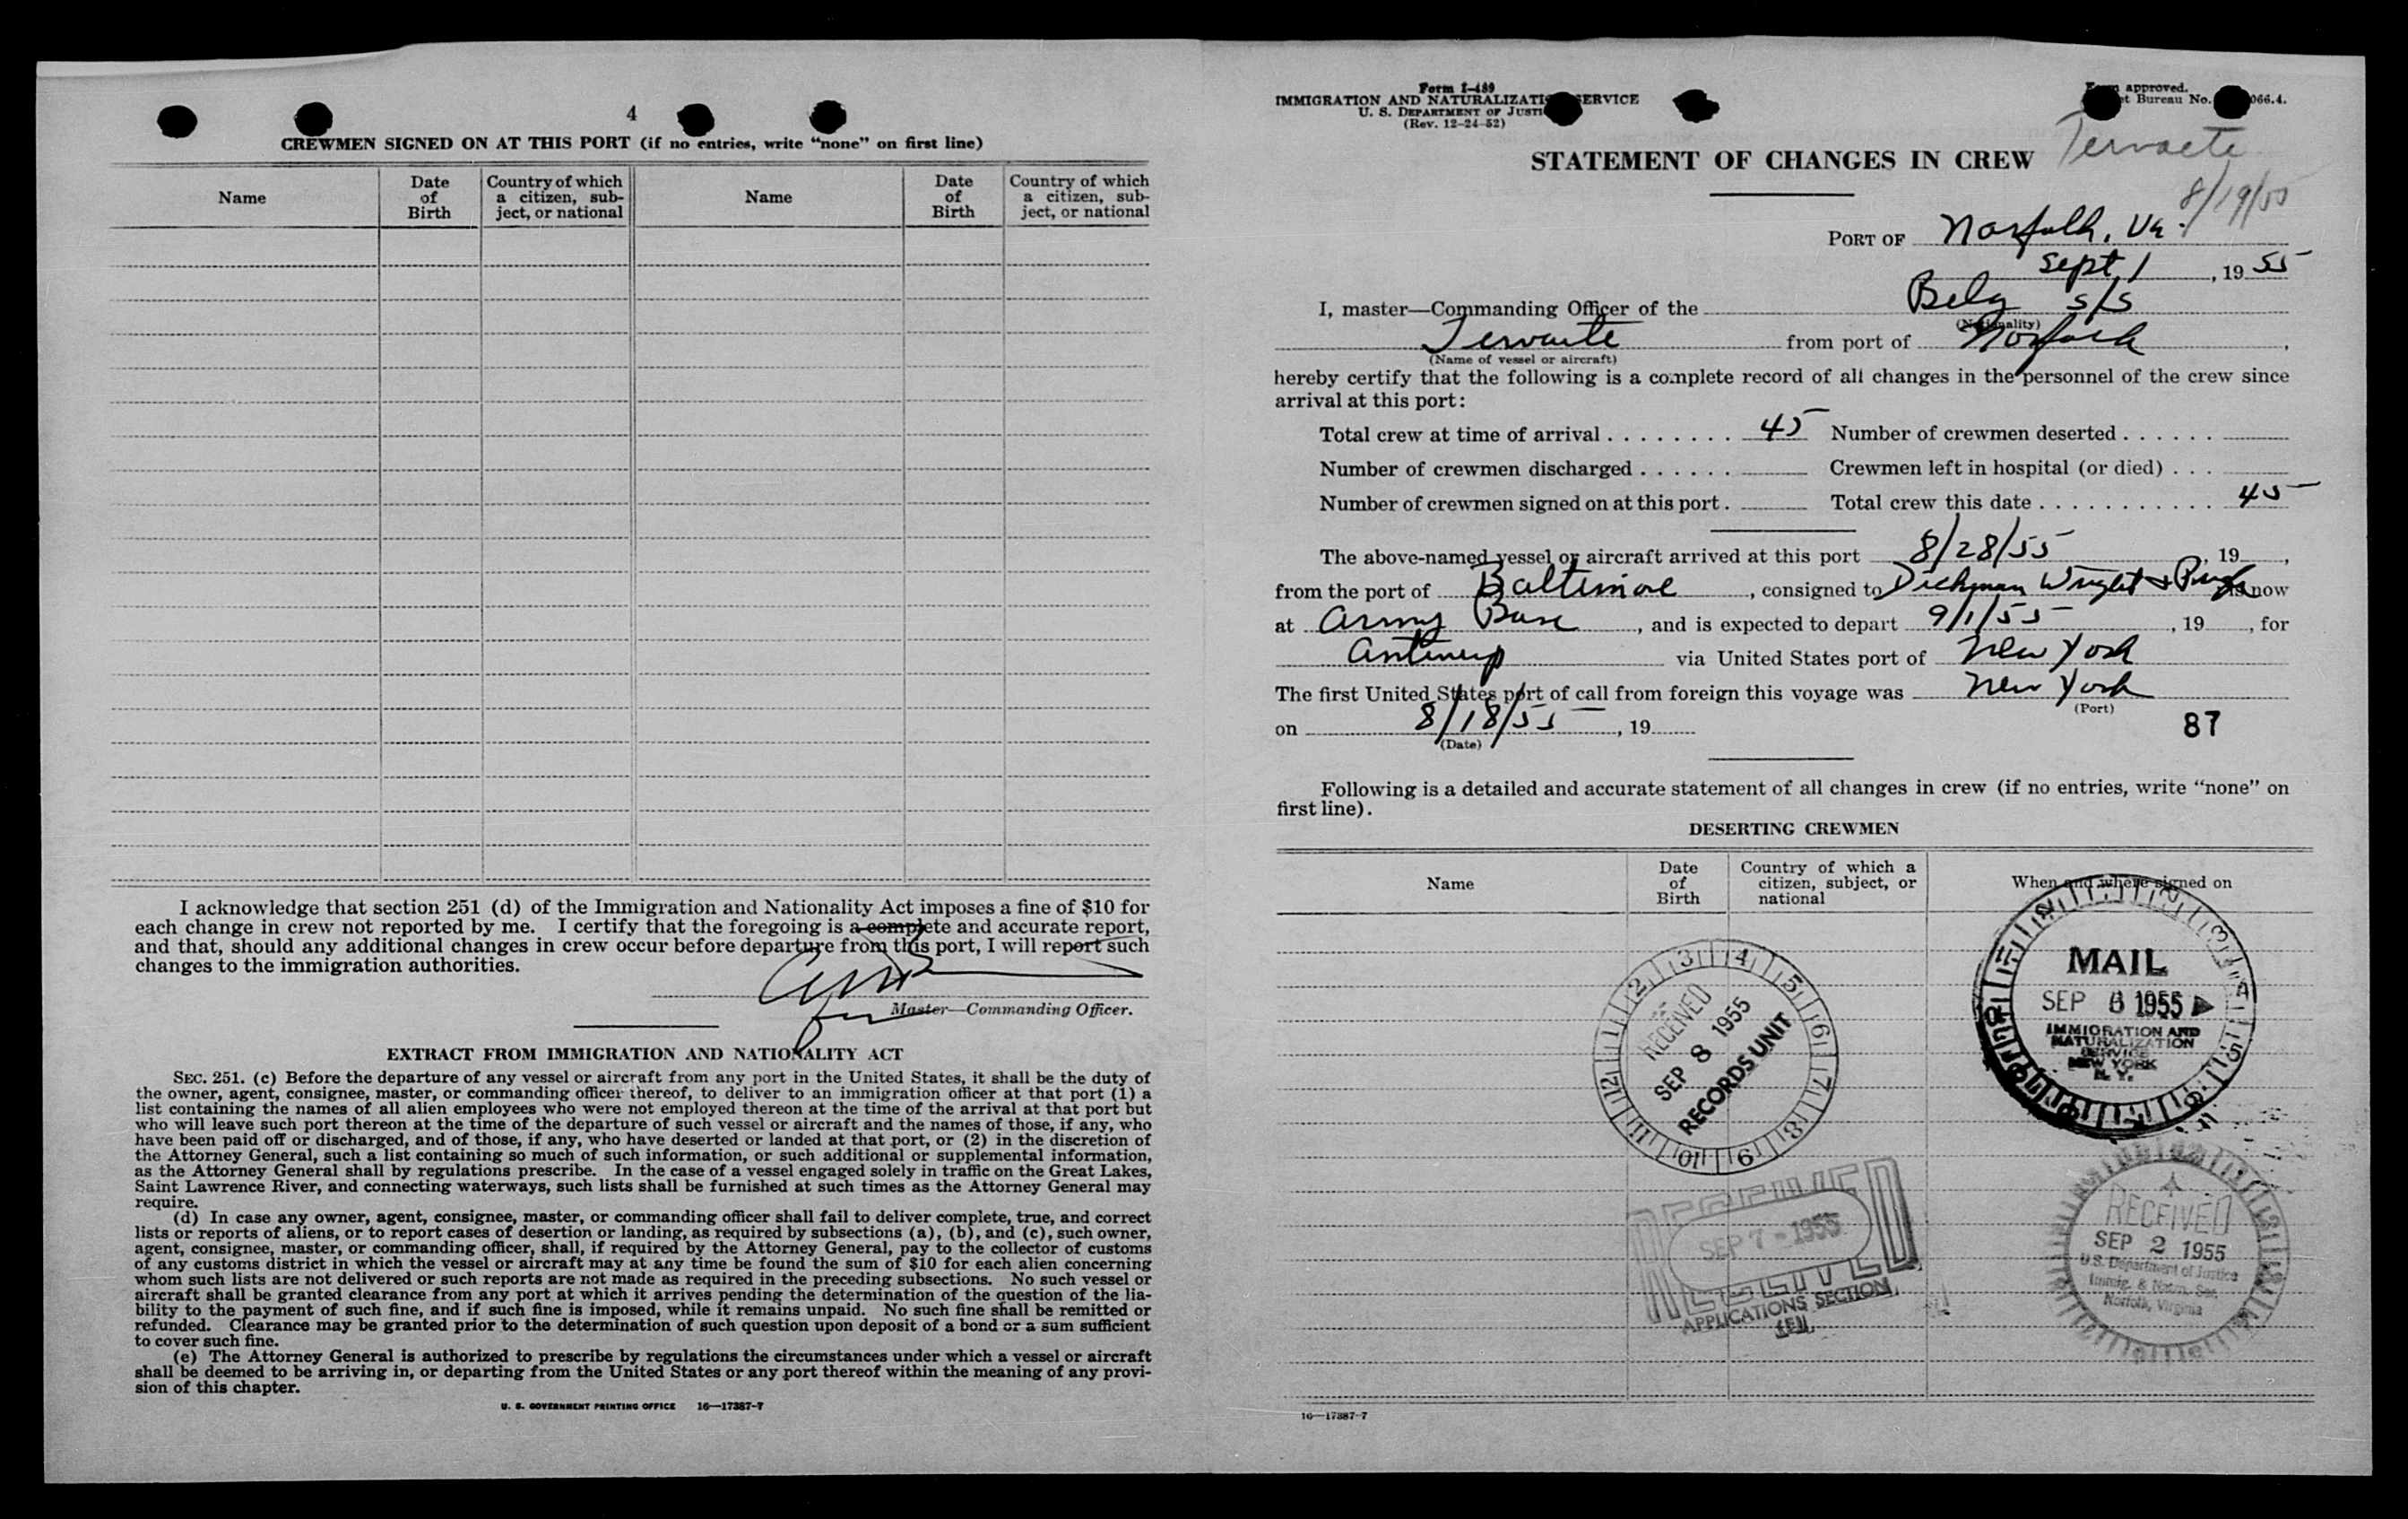 4
CREWMEN SIGNED ON AT THIS PORT (if no entries, write "none" on first line)
Name
Date of Birth
Country of which a citizen, sub-ject, or national
Name
Date of Birth
Country of which a citizen, sub-ject, or national
I acknowledge that section 251 (d) of the Immigration and Nationality Act imposes a fine of $10 for
each change in crew not reported by me. I certify that the foregoing is a complete and accurate report,
and that, should any additional changes in crew occur before departure from this port, I will report such
changes to the immigration authorities.
Master—Commanding Officer.
EXTRACT FROM IMMIGRATION AND NATIONALITY ACT
SEC. 251. (c) Before the departure of any vessel or aircraft from any port in the United States, it shall be the duty of
the owner, agent, consignee, master, or commanding officer thereof, to deliver to an immigration officer at that port (1) a
list containing the names of all alien employees who were not employed thereon at the time of the arrival at that port but
who will leave such port thereon at the time of the departure of such vessel or aircraft and the names of those, if any, who
have been paid off or discharged, and of those, if any, who have deserted or landed at that port, or (2) in the discretion of
the Attorney General, such a list containing so much of such information, or such additional or supplemental information,
as the Attorney General shall by regulations prescribe. In the case of a vessel engaged solely in traffic on the Great Lakes,
Saint Lawrence River, and connecting waterways, such lists shall be furnished at such times as the Attorney General may
require.
(d) In case any owner, agent, consignee, master, or commanding officer shall fail to deliver complete, true, and correct
lists or reports of aliens, or to report cases of desertion or landing, as required by subsections (a), (b), and (c), such owner,
agent, consignee, master, or commanding officer, shall, if required by the Attorney General, pay to the collector of customs
of any customs district in which the vessel or aircraft may at any time be found the sum of $10 for each alien concerning
whom such lists are not delivered or such reports are not made as required in the preceding subsections. No such vessel or
aircraft shall be granted clearance from any port at which it arrives pending the determination of the question of the lia-
bility to the payment of such fine, and if such fine is imposed, while it remains unpaid. No such fine shall be remitted or
refunded. Clearance may be granted prior to the determination of such question upon deposit of a bond or a sum sufficient
to cover such fine.
(e) The Attorney General is authorized to prescribe by regulations the circumstances under which a vessel or aircraft
shall be deemed to be arriving in, or departing from the United States or any port thereof within the meaning of any provi-
sion of this chapter.
U. S. GOVERNMENT PRINTING OFFICE 16—17387-7
Form I-489
IMMIGRATION AND NATURALIZATI SERVICE
U. S. DEPARTMENT OF JUSTI
(Rev. 12-24-52)
approved.
t Bureau No. 066.4.
Tervaete
8/19/55
STATEMENT OF CHANGES IN CREW
PORT OF Norfolk, Va.
Sept 1, 19 55
I, master—Commanding Officer of the Belg s/s
(Nationality)
Tervaete from port of Norfolk,
(Name of vessel or aircraft)
hereby certify that the following is a complete record of all changes in the personnel of the crew since
arrival at this port:
Total crew at time of arrival . . . . . . . . 45 Number of crewmen deserted . . . . . .
Number of crewmen discharged . . . . . . Crewmen left in hospital (or died) . . .
Number of crewmen signed on at this port . Total crew this date . . . . . . . . . . . 45
The above-named vessel or aircraft arrived at this port 8/28/55, 19 ,
from the port of Baltimore, consigned to Dichman Wright & Pugh is now
at Army Base, and is expected to depart 9/1/55, 19 , for
Antwerp via United States port of New York
The first United States port of call from foreign this voyage was New York
(Port)
on 8/18/55, 19
(Date)
87
Following is a detailed and accurate statement of all changes in crew (if no entries, write "none" on
first line).
DESERTING CREWMEN
Name
Date of Birth
Country of which a citizen, subject, or national
When and where signed on
MAIL
SEP 6 1955
IMMIGRATION AND
NATURALIZATION
SERVICE
NEW YORK
N. Y.
RECEIVED
SEP 8 1955
RECORDS UNIT
RECEIVED
SEP 7 - 1955
APPLICATIONS SECTION
RECEIVED
SEP 2 1955
U.S. Department of Justice
Immig. & Natzn. Ser.
Norfolk, Virginia
16—17387-7